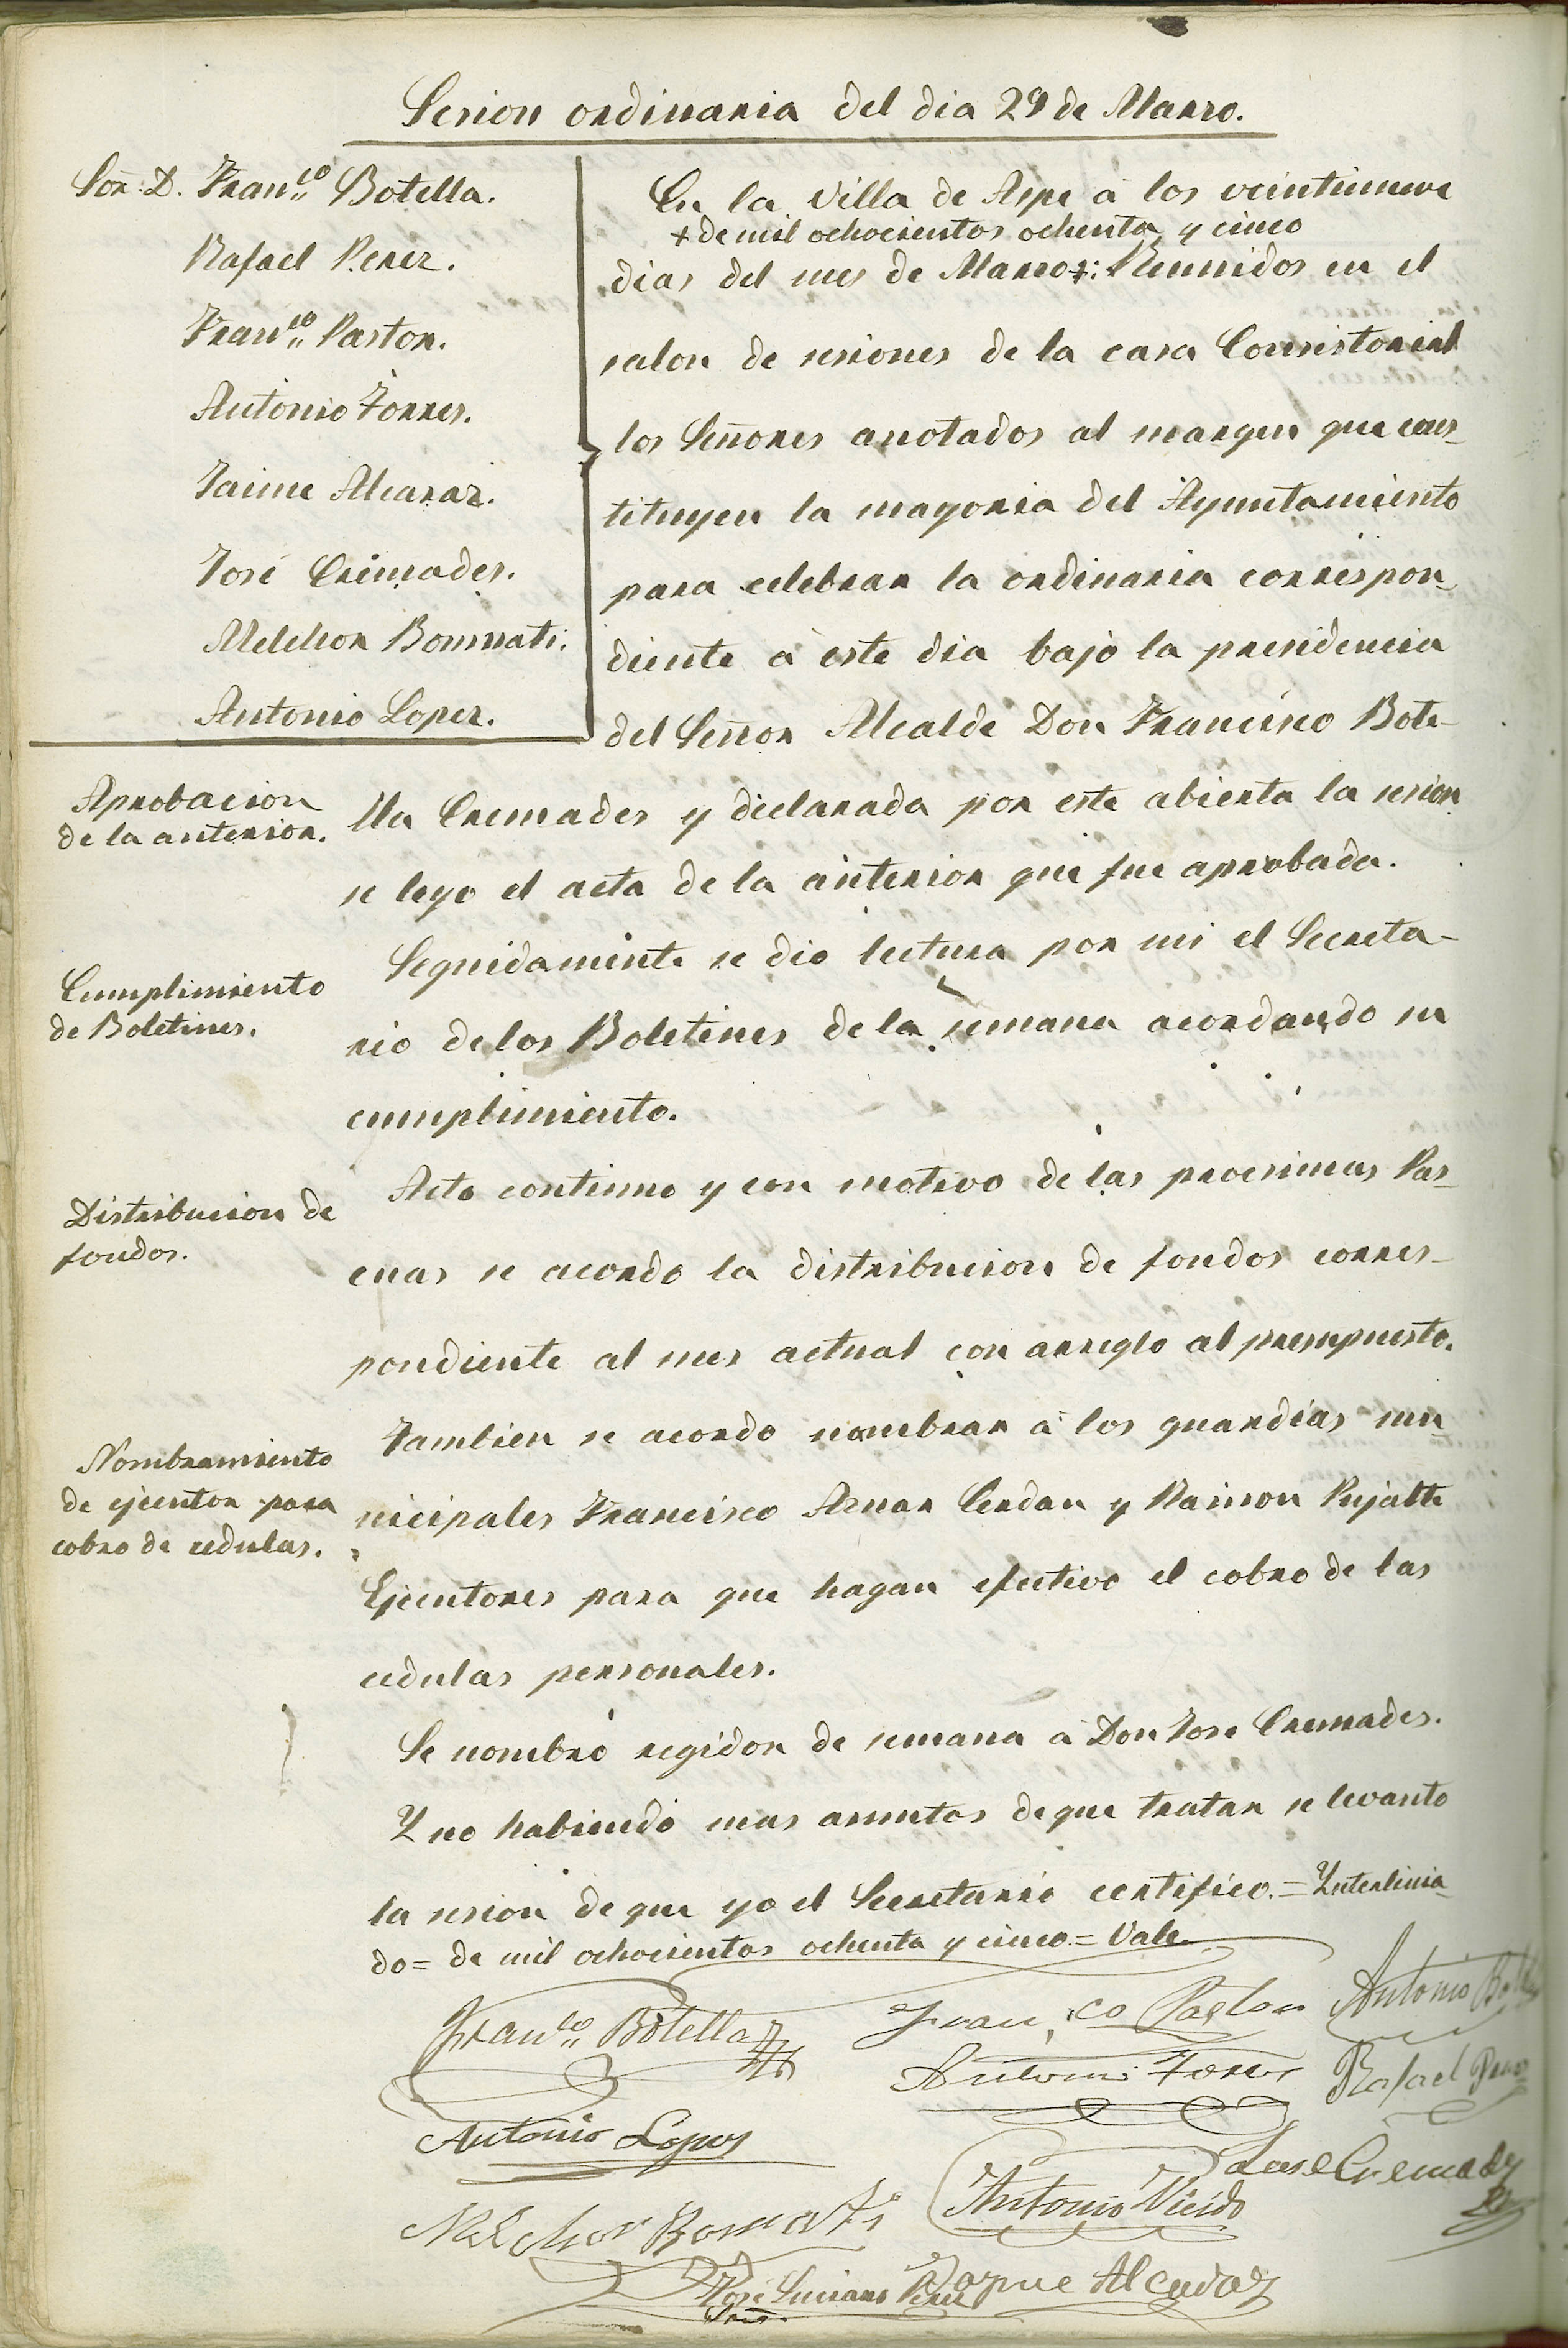 Sesion ordinaria del dia 29 de Marzo.
Sor. D. Fran.co Botella.
Rafael Perez.
Fran.co Pastor.
Antonio Torres.
Jaime Alcaraz.
José Cremades.
Melchor Bonmati.
Antonio Lopez.
En la Villa de Aspe á los veintinueve
+ de mil ochocientos ochenta y cinco
dias del mes de Marzo +: Reunidos en el
salon de sesiones de la casa Consistorial
los Señores anotados al margen que cons-
tituyen la mayoria del Ayuntamiento
para celebrar la ordinaria correspon-
diente á este dia bajo la presidencia
del Señor Alcalde Don Francisco Bote-
Aprobacion
de la anterior.
lla Cremades y declarada por este abierta la sesion
se leyo el acta de la anterior que fue aprobada.
Seguidamente se dio lectura por mi el Secreta-
Cumplimiento
de Boletines.
rio de los Boletines de la semana acordando su
cumplimiento.
Acto continuo y con motivo de las procsimas Pas-
Distribucion de
fondos.
cuas se acordo la distribucion de fondos corres-
pondiente al mes actual con arreglo al presupuesto.
Tambien se acordo nombrar á los guardias mu-
Nombramiento
de ejecutor para
cobro de cedulas.
nicipales Francisco Aznar Cerdan y Ramon Pujalte
Ejecutores para que hagan efectivo el cobro de las
cedulas personales.
Se nombró regidor de semana á Don Jose Cremades.
Y no habiendo mas asuntos de que tratar se levanto
la sesion de que yo el Secretario certifico. = Ynterlinia-
do = de mil ochocientos ochenta y cinco = Vale
Fran.co Botella
Fran,co Pastor
Antonio
Antonio Torres
Rafael Perez
Antonio Lopez
Jose Cremades
Antonio
Melchor Bonmati
Jaime Alcaraz
José Luciano Perez
Srio.